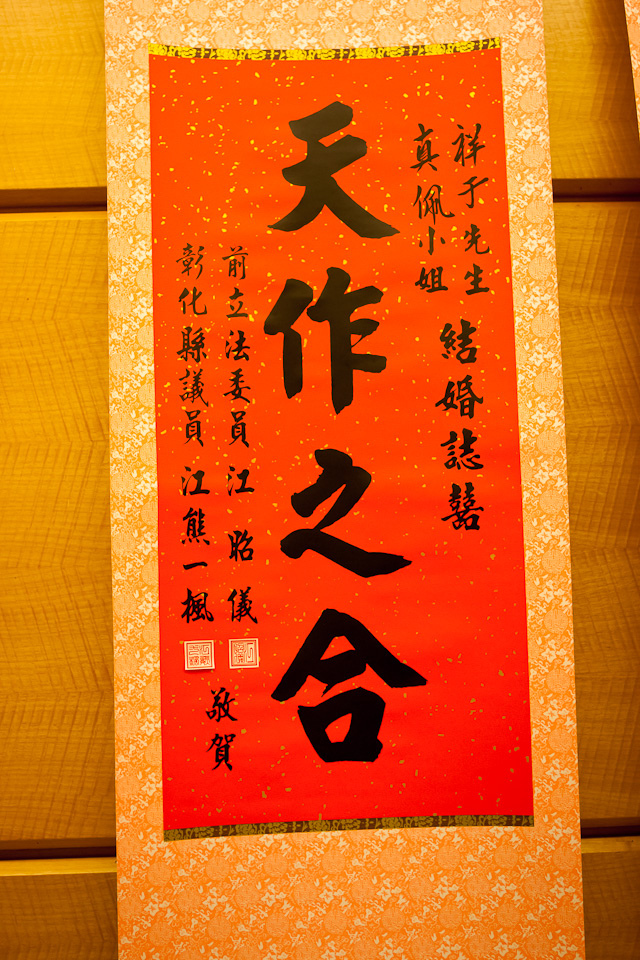 祥于先生
真佩小姐
結婚誌囍
天作之合
前立法委員 江昭儀
彰化縣議員 江熊一楓
敬賀